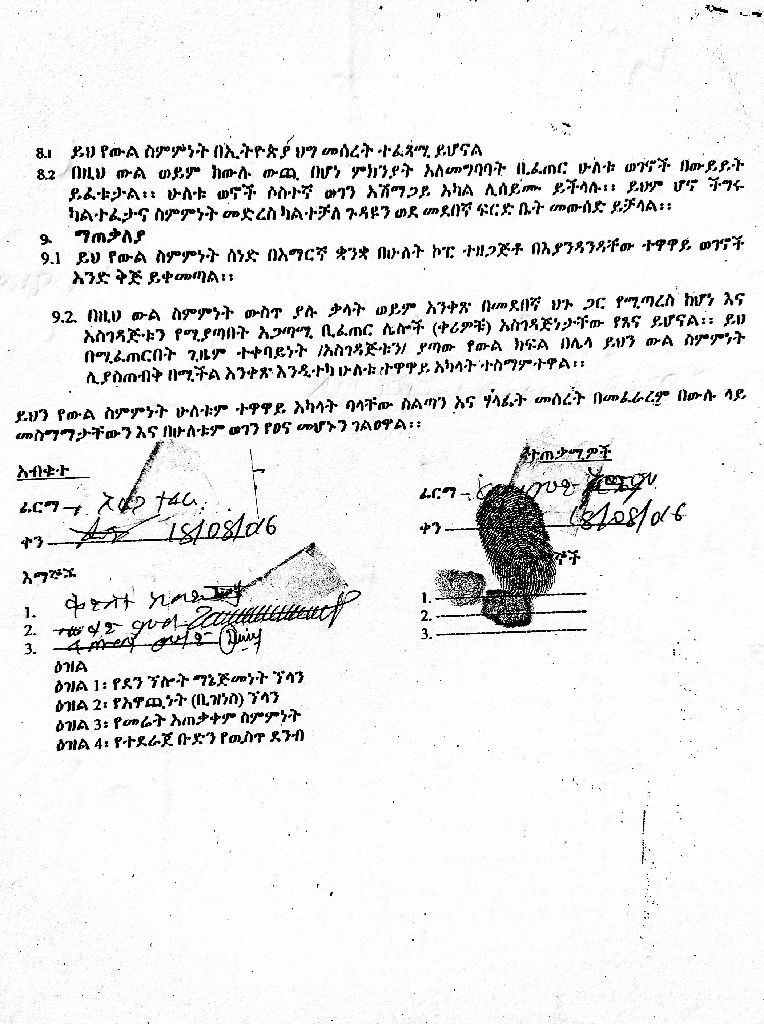 8.1 ይህ የውል ስምምነት በኢትዮጵያ ህግ መሰረት ተፈጻሚ ይሆናል
8.2 በዚህ ውል ወይም ከውሉ ውጪ በሆነ ምክንያት አለመግባባት ቢፈጠር ሁለቱ ወገኖች በውይይት
ይፈቱታል፡፡ ሁለቱ ወኖች ሶስተኛ ወገን አሸማጋይ አካል ሊሰይሙ ይችላሉ፡፡ ይህም ሆኖ ችግሩ
ካልተፈታና ስምምነት መድረስ ካልተቻለ ጉዳዩን ወደ መደበኛ ፍርድ ቤት መውሰድ ይቻላል፡፡
9. ማጠቃለያ
9.1 ይህ የውል ስምምነት ሰነድ በአማርኛ ቋንቋ በሁለት ኮፒ ተዘጋጅቶ በእያንዳንዳቸው ተዋዋይ ወገኖች
አንድ ቅጅ ይቀመጣል፡፡
9.2. በዚህ ውል ስምምነት ውስጥ ያሉ ቃላት ወይም አንቀጽ በመደበኛ ህጉ ጋር የሚጣረስ ከሆነ እና
አስገዳጅቱን የሚያጣበት አጋጣሚ ቢፈጠር ሌሎች (ቀሪዎቹ) አስገዳጅነታቸው የጸና ይሆናል፡፡ ይህ
በሚፈጠርበት ጊዜም ተቀባይነት /አስገዳጅቱን/ ያጣው የውል ክፍል በሌላ ይህን ውል ስምምነት
ሊያስጠብቅ በሚችል አንቀጽ እንዲተካ ሁለቱ ተዋዋይ አካላት ተስማምተዋል፡፡
ይህን የውል ስምምነት ሁለቱም ተዋዋይ አካላት ባላቸው ስልጣን እና ሃላፊት መሰረት በመፈራረም በውሉ ላይ
መስማማታቸውን እና በሁለቱም ወገን የፀና መሆኑን ገልፀዋል፡፡
አብቁተ ተጠቃሚዎች
ፊርማ ፊርማ
ቀን 18/08/06 ቀን 18/08/06
እማኞች
1. 1.
2. 2.
3. 3.
ዕዝል
ዕዝል 1፡ የደን ፕሎት ማኔጅመንት ፕላን
ዕዝል 2፡ የአዋጪነት (ቢዝነስ) ፕላን
ዕዝል 3፡ የመሬት አጠቃቀም ስምምነት
ዕዝል 4፡ የተደራጀ ቡድን የዉስጥ ደንብ